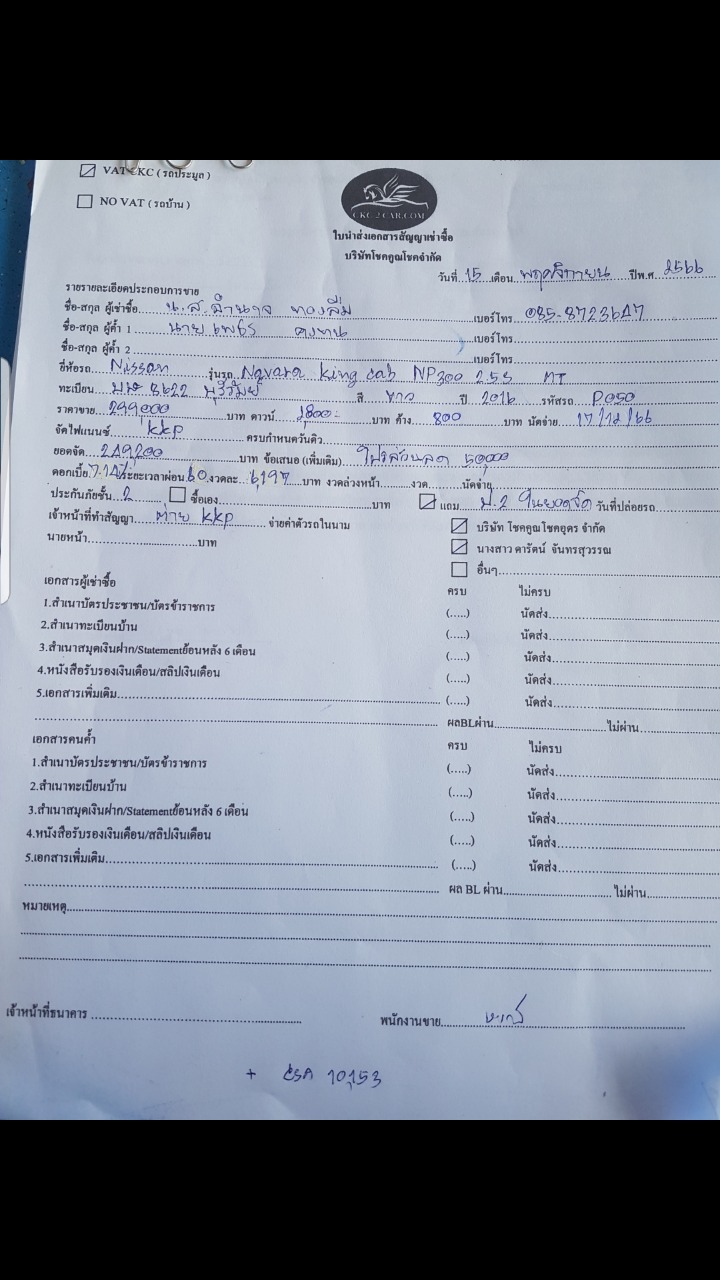 VAT CKC ( รถประมูล )
NO VAT ( รถบ้าน )
CKC 2 CAR.COM
ใบนำส่งเอกสารสัญญาเช่าซื้อ
บริษัทโชคคูณโชคจำกัด
วันที่ 15 เดือน พฤศจิกายน ปีพ.ศ 2566
รายรายละเอียดประกอบการขาย
ชื่อ-สกุล ผู้เช่าซื้อ น.ส.อำนาจ ทองลิ่ม เบอร์โทร 085-8723647
ชื่อ-สกุล ผู้ค้ำ 1 นาย เพชร คงทน เบอร์โทร
ชื่อ-สกุล ผู้ค้ำ 2 เบอร์โทร
ยี่ห้อรถ Nissan รุ่นรถ Navara King cab NP300 2.5S MT
ทะเบียน 8622 บุรีรัมย์ สี ขาว ปี 2016 รหัสรถ P050
ราคาขาย 299,000 บาท ดาวน์ 1800.- บาท ค้าง 800 บาท นัดจ่าย 17/12/66
จัดไฟแนนซ์ KKP ครบกำหนดวันคิว
ยอดจัด 249,200 บาท ข้อเสนอ (เพิ่มเติม) ใบส่วนลด 50,000
ดอกเบี้ย 7.14% ระยะเวลาผ่อน 60 งวดละ 6,197 บาท งวดล่วงหน้า งวด นัดจ่าย
ประกันภัยชั้น 2 ซื้อเอง บาท แถม ป.2 ในยอดจัด วันที่ปล่อยรถ
เจ้าหน้าที่ทำสัญญา ต่าย KKP จ่ายค่าตัวรถในนาม บริษัท โชคคูณโชคอุดร จำกัด
นายหน้า บาท นางสาว ดารัตน์ จันทรสุวรรณ
อื่นๆ
เอกสารผู้เช่าซื้อ ครบ ไม่ครบ
1.สำเนาบัตรประชาชน/บัตรข้าราชการ (.....) นัดส่ง
2.สำเนาทะเบียนบ้าน (.....) นัดส่ง
3.สำเนาสมุดเงินฝาก/Statementย้อนหลัง 6 เดือน (.....) นัดส่ง
4.หนังสือรับรองเงินเดือน/สลิปเงินเดือน (.....) นัดส่ง
5.เอกสารเพิ่มเติม (.....) นัดส่ง
ผลBLผ่าน ไม่ผ่าน
เอกสารคนค้ำ ครบ ไม่ครบ
1.สำเนาบัตรประชาชน/บัตรข้าราชการ (.....) นัดส่ง
2.สำเนาทะเบียนบ้าน (.....) นัดส่ง
3.สำเนาสมุดเงินฝาก/Statementย้อนหลัง 6 เดือน (.....) นัดส่ง
4.หนังสือรับรองเงินเดือน/สลิปเงินเดือน (.....) นัดส่ง
5.เอกสารเพิ่มเติม (.....) นัดส่ง
ผล BL ผ่าน ไม่ผ่าน
หมายเหตุ
เจ้าหน้าที่ธนาคาร พนักงานขาย
+ 10,153